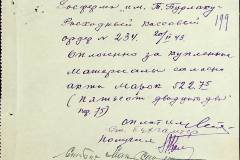 Госферма им. Т. Бурлаку
199
Расходный кассовый
ордер № 234. 20/II 43
Оплачено за купленные
материалы согласно
акта марок 522.75
(пятьсот двадцать два
мр. 75)
оплатил
Ст. Бухгалтер
получил